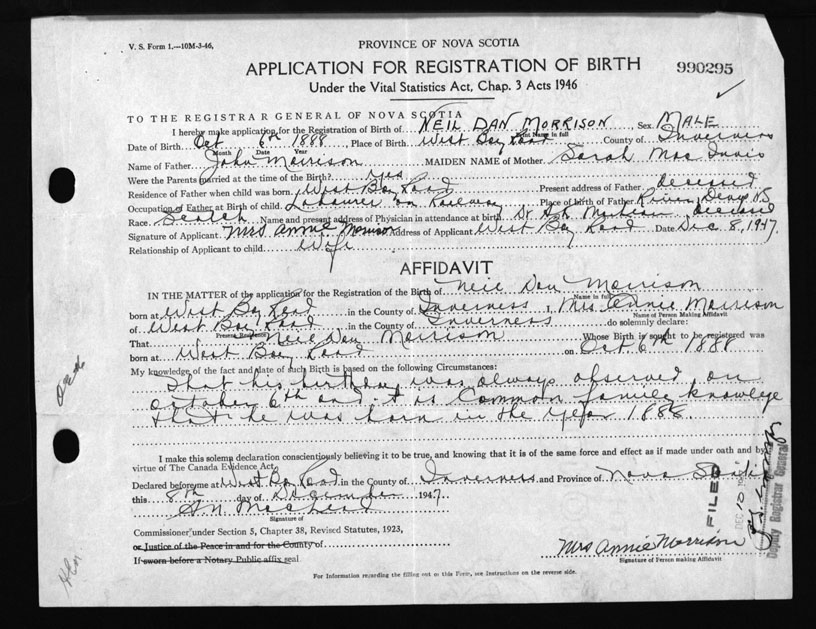 V. S. Form 1.—10M-3-46,
PROVINCE OF NOVA SCOTIA
APPLICATION FOR REGISTRATION OF BIRTH
990295
Under the Vital Statistics Act, Chap. 3 Acts 1946
TO THE REGISTRAR GENERAL OF NOVA SCOTIA
I hereby make application for the Registration of Birth of NEIL DAN MORRISON, Sex MALE
Print Name in full
Date of Birth Oct 6th 1888, Place of Birth West Bay Road County of Inverness
Month Date Year
Name of Father John Morrison MAIDEN NAME of Mother Sarah Mac Innis
Were the Parents married at the time of the Birth? yes
Residence of Father when child was born West Bay Road Present address of Father deceased
Occupation of Father at Birth of child Labourer on Railway Place of birth of Father River Denys N.S
Race Scotch Name and present address of Physician in attendance at birth Dr deceased
Signature of Applicant Mrs Annie Morrison Address of Applicant West Bay Road Date Dec 8, 1947.
Relationship of Applicant to child Wife
AFFIDAVIT
IN THE MATTER of the application for the Registration of the Birth of Neil Dan Morrison
Name in full
born at West Bay Road in the County of Inverness I, Mrs. Annie Morrison
Name of Person Making Affidavit
of West Bay Road in the County of Inverness do solemnly declare:
Present Residence
That Neil Dan Morrison Whose Birth is sought to be registered was
born at West Bay Road on Oct 6th 1888
My knowledge of the fact and date of such Birth is based on the following Circumstances:
That his birthday was always observed on
October 6th and it is Common family knowlege
that he was born in the year 1888
I make this solemn declaration conscientiously believing it to be true, and knowing that it is of the same force and effect as if made under oath and by
virtue of The Canada Evidence Act.
Declared before me at West Bay Road in the County of Inverness and Province of Nova Scotia
this 8th day of December 1947
A N MacLeod
Signature of
Commissioner under Section 5, Chapter 38, Revised Statutes, 1923,
or Justice of the Peace in and for the County of
If sworn before a Notary Public affix seal
Mrs Annie Morrison
Signature of Person making Affidavit
For Information regarding the filling out of this Form, see Instructions on the reverse side.
FILED
DEC 10
Deputy Registrar General